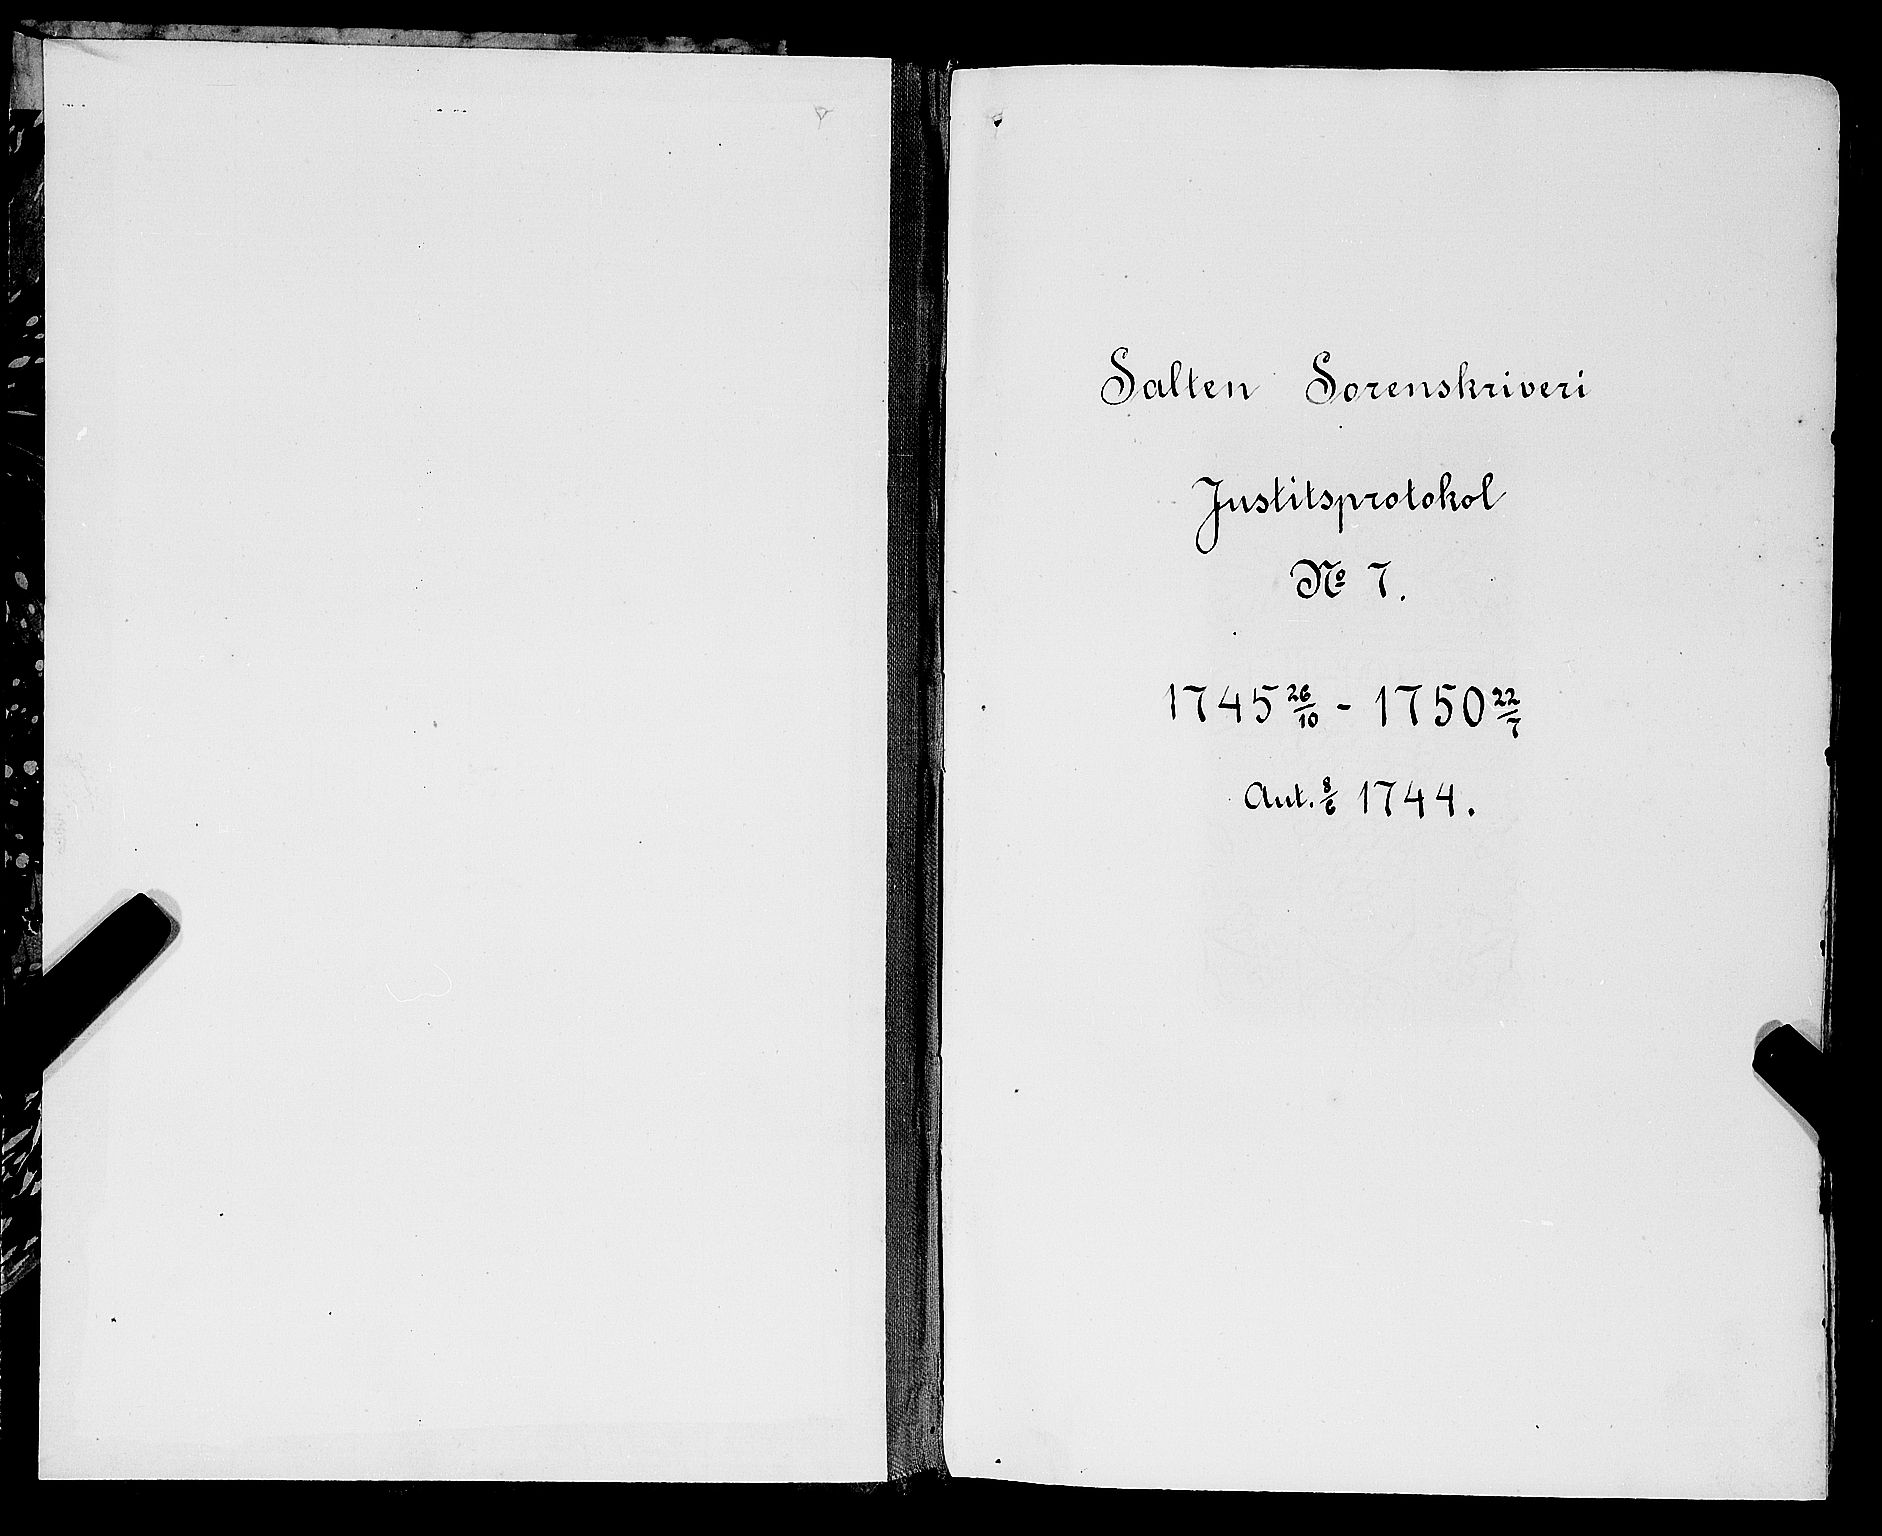 Salten Sorenskriveri
Justitsprotokol
№ 7.
1745 26/10 - 1750 22/7
Aut. 8/6 1744.